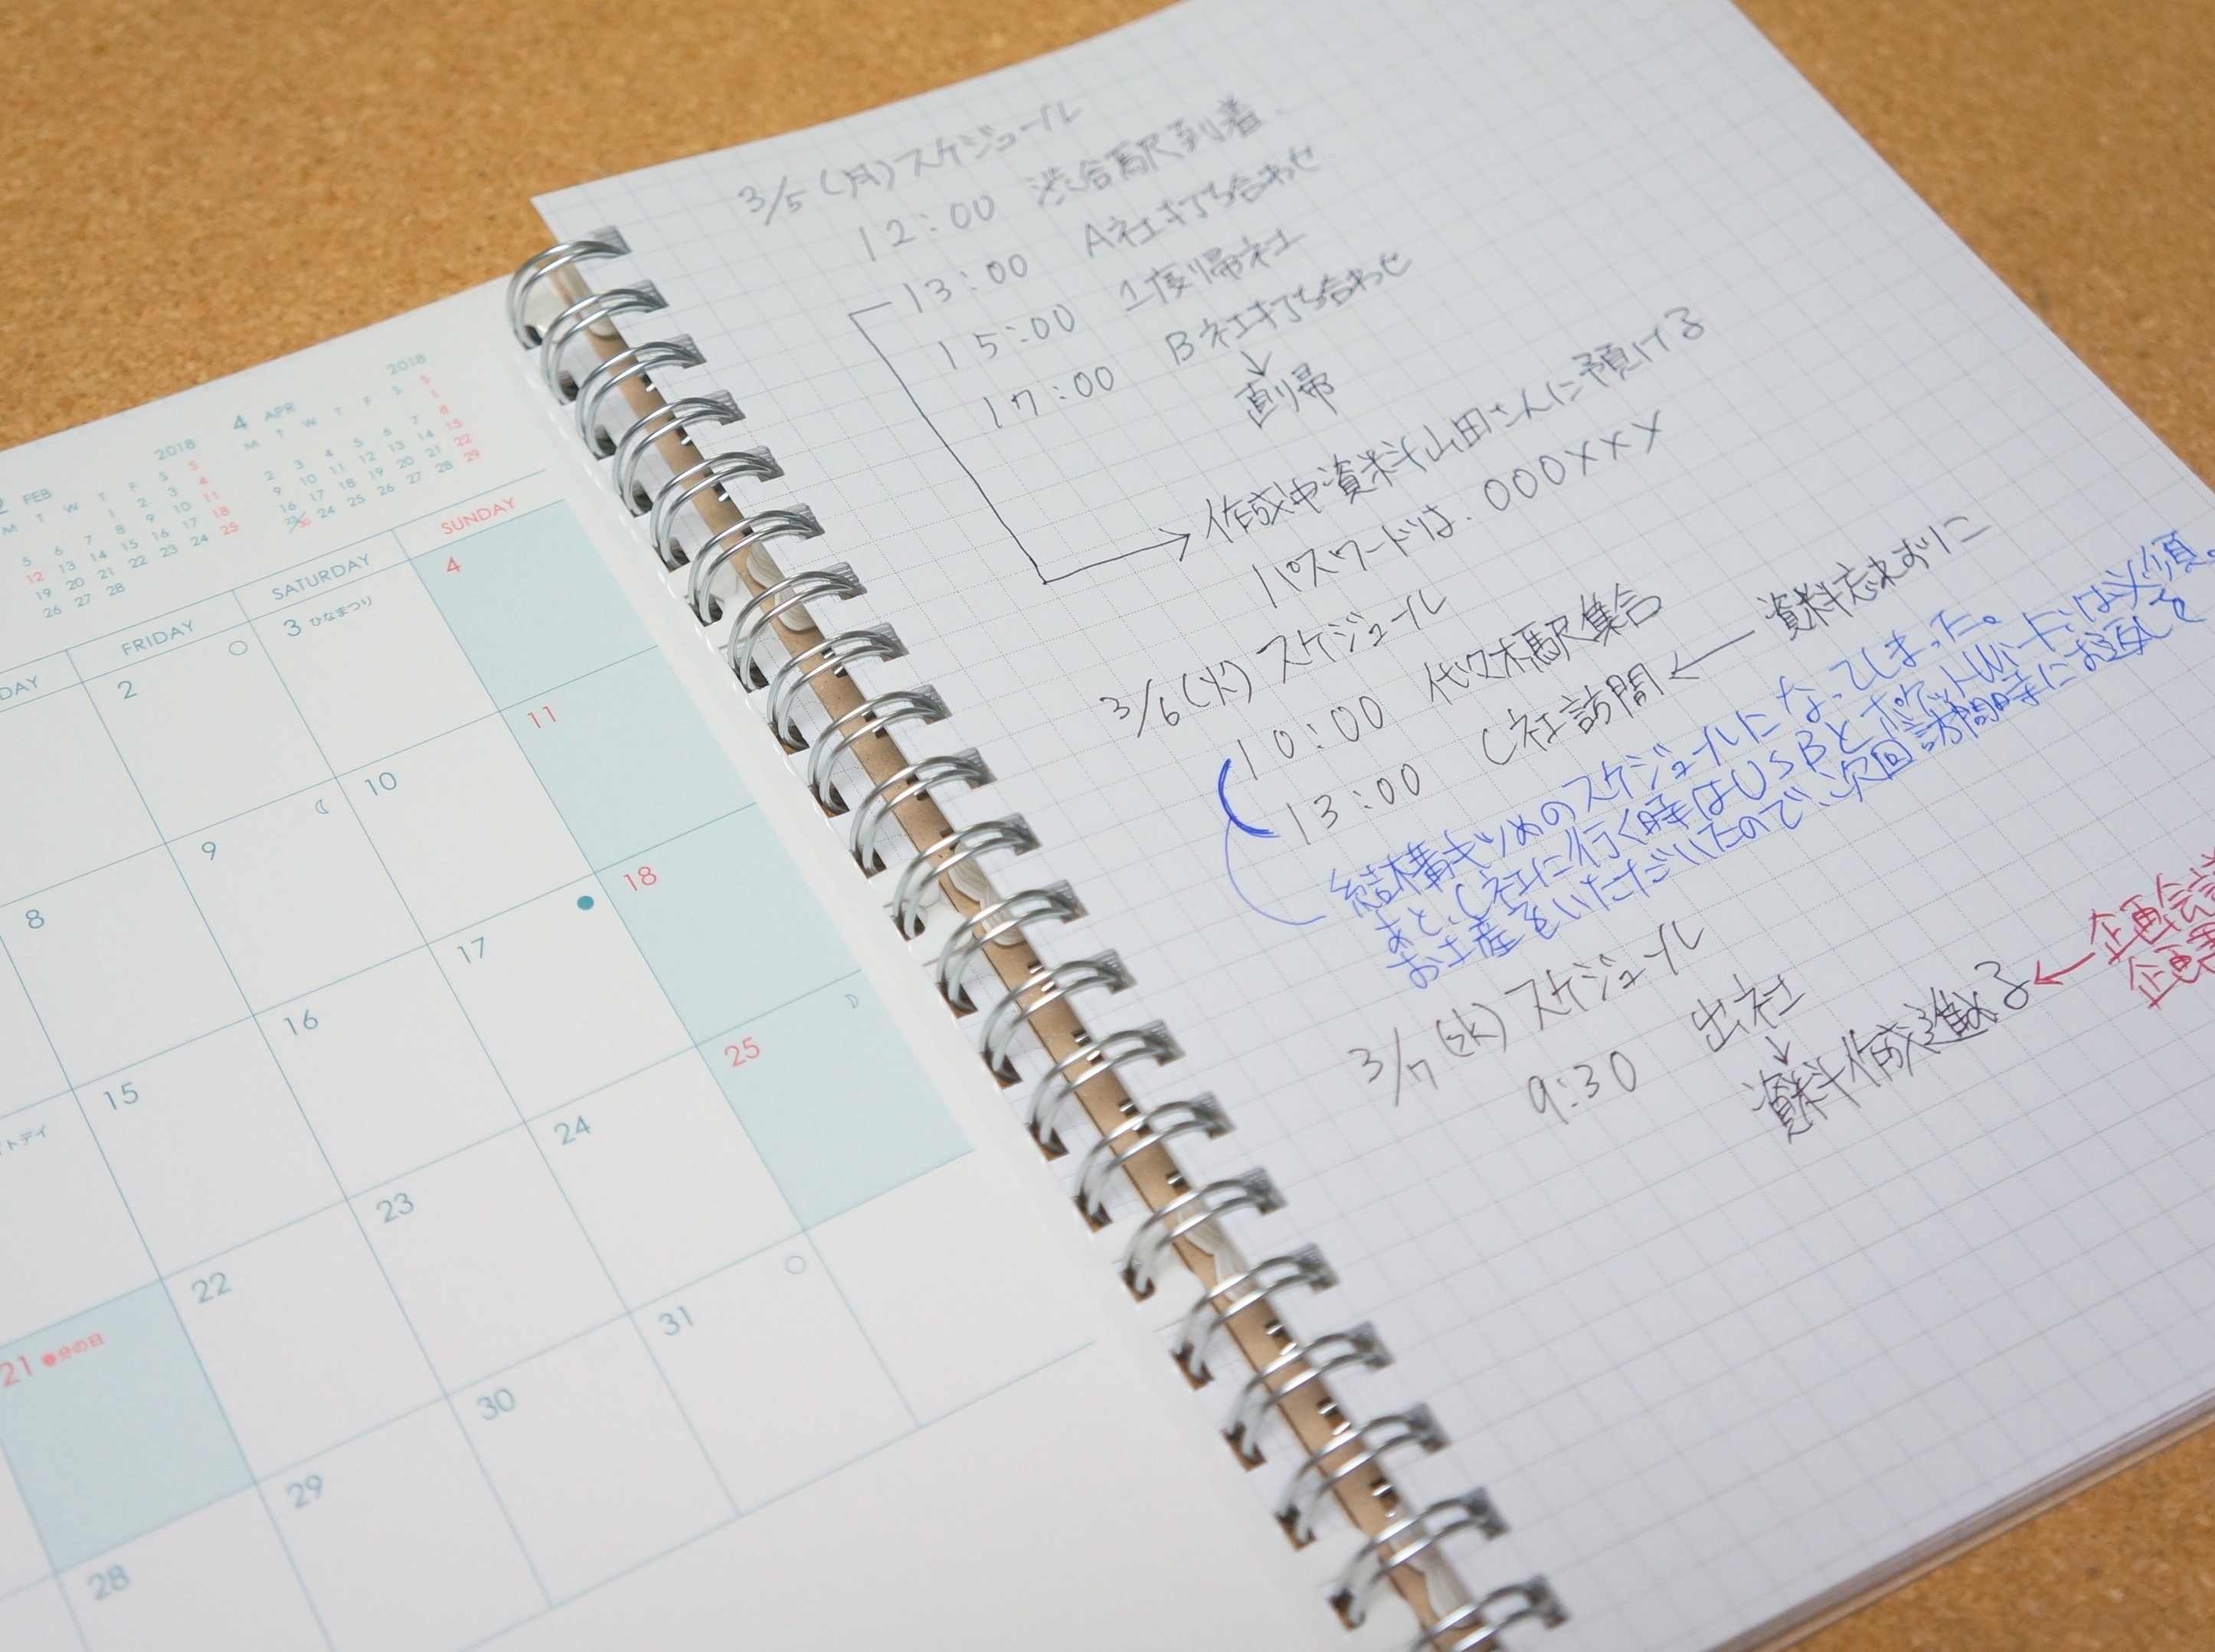 2 FEB 2018
M T W T F S S
1 2 3 4
5 6 7 8 9 10 11
12 13 14 15 16 17 18
19 20 21 22 23 24 25
26 27 28
4 APR 2018
M T W T F S S
1
2 3 4 5 6 7 8
9 10 11 12 13 14 15
16 17 18 19 20 21 22
23/30 24 25 26 27 28 29
DAY FRIDAY SATURDAY SUNDAY
2 3 ひなまつり 4
8 9 10 11
トデイ 15 16 17 18
21 春分の日 22 23 24 25
28 29 30 31
3/5(月)スケジュール
12:00 渋谷駅到着
13:00 A社打ち合わせ
15:00 1度帰社
17:00 B社打ち合わせ
↓
直帰
→作成中資料山田さんに預ける
パスワードは、000XXX
3/6(火)スケジュール
10:00 代々木駅集合
13:00 C社訪問 ← 資料忘れずに
結構キツめのスケジュールになってしまった。
あと、C社に行く時はUSBとポケットWi-Fiは必須。
お土産をいただいたので、次回訪問時にお返しを
3/7(水)スケジュール
9:30 出社
↓
資料作成進める ← 企画会
企画